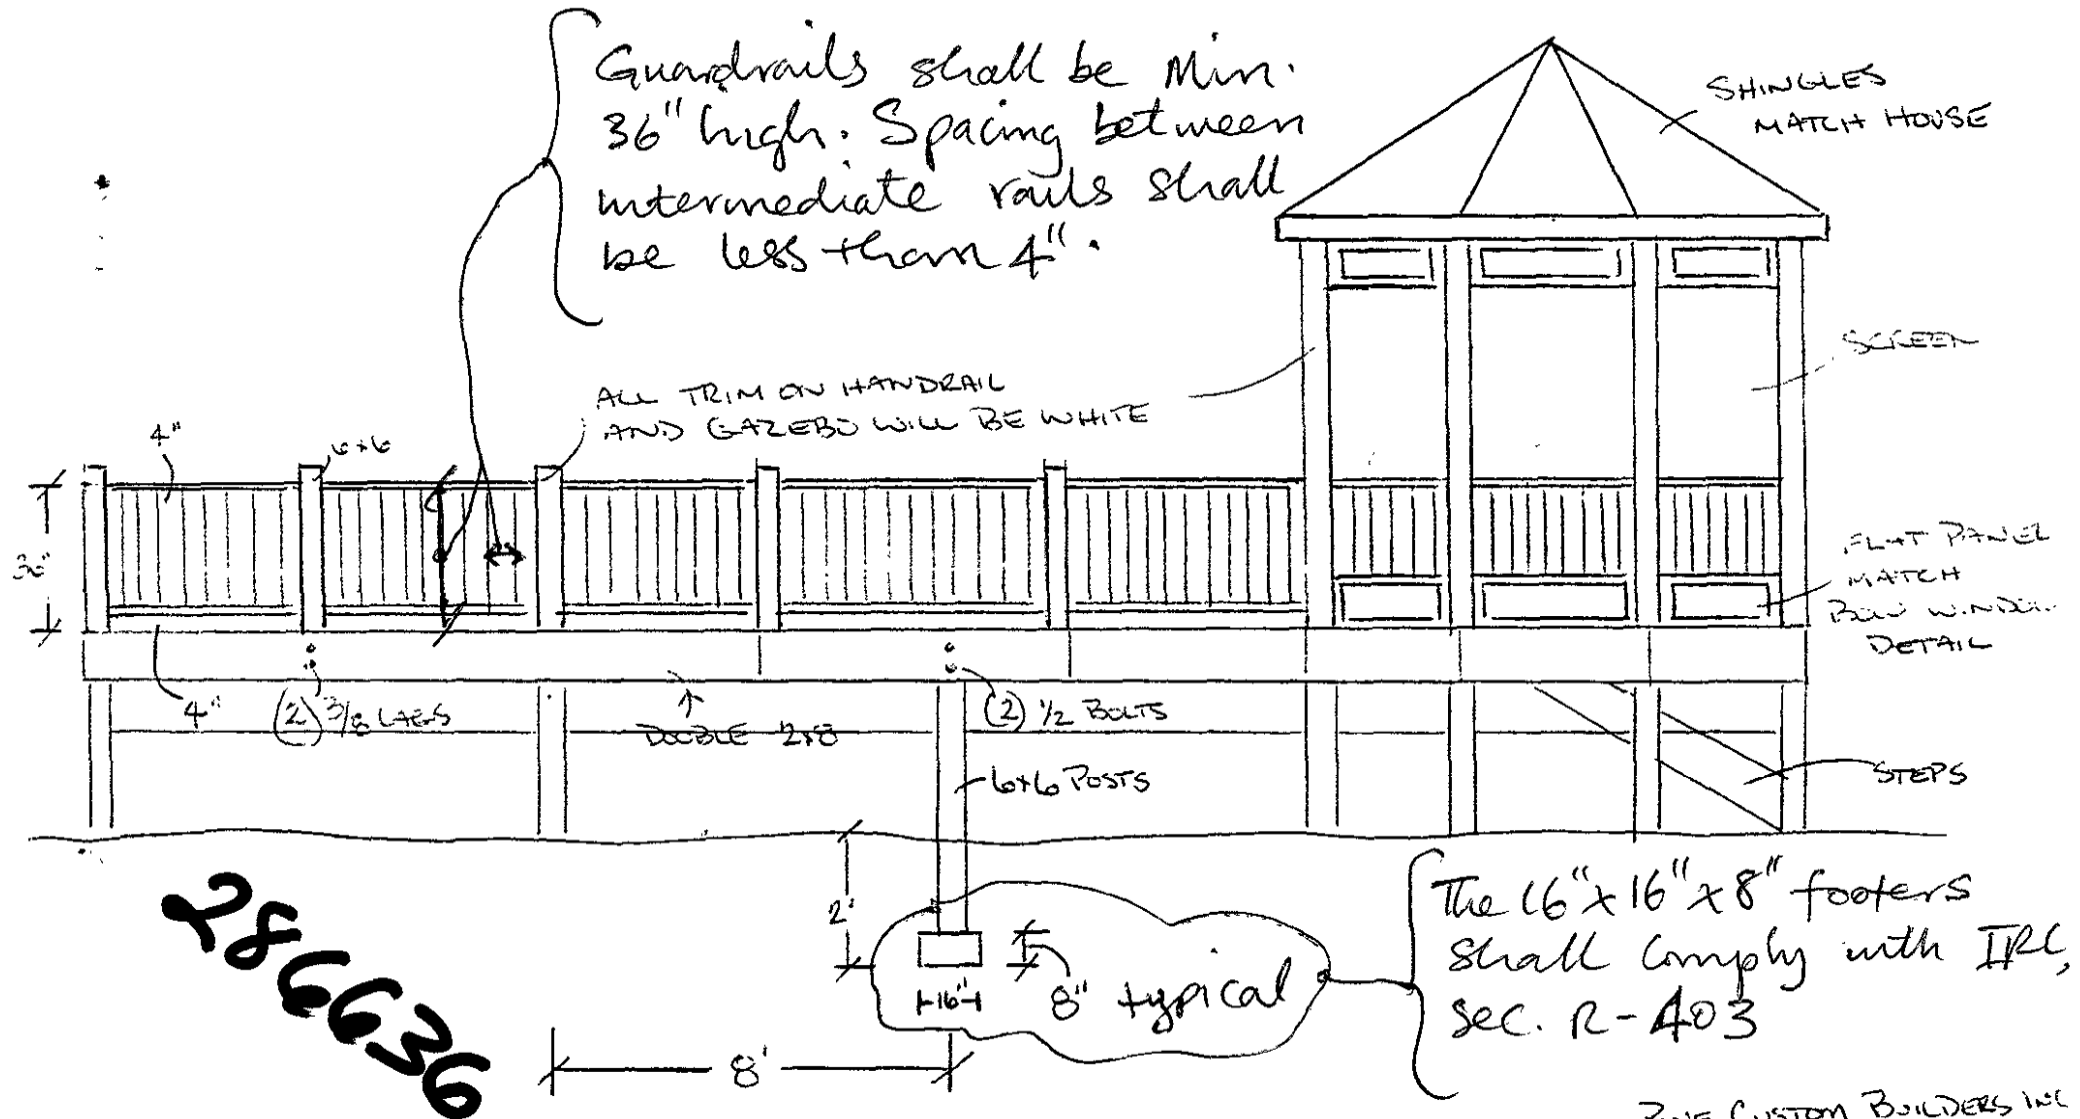 Guardrails shall be Min.
36" high. Spacing between
intermediate rails shall
be less than 4".
SHINGLES
MATCH HOUSE
SCREEN
ALL TRIM ON HANDRAIL
AND GAZEBO WILL BE WHITE
4"
6x6
36"
FLAT PANEL
MATCH
BOW WINDOW
DETAIL
4"
(2) 3/8 LAGS
DOUBLE 2x8
(2) 1/2 BOLTS
6x6 POSTS
STEPS
2'
16"
8" typical
The 16" x 16" x 8" footers
shall comply with IRC,
sec. R-403
8'
286636
CUSTOM BUILDERS INC